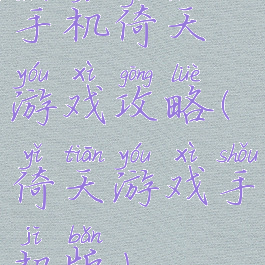 手机倚天
yóu xì gōng lüè
游戏攻略(
yǐ tiān yóu xì shǒu
倚天游戏手
jī bǎn
机版)